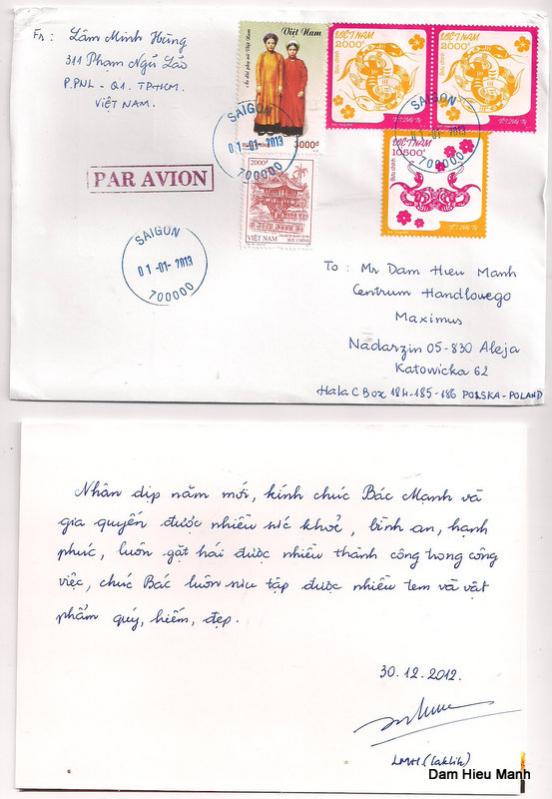 Fr: Lâm Minh Hùng
311 Phạm Ngũ Lão
P.PNL - Q1. TPHCM.
VIỆT NAM.
PAR AVION
Việt Nam
3000đ
VIỆT NAM
2000đ
VIỆT NAM
2000đ
VIỆT NAM
10500đ
2000đ
VIỆT NAM
SAIGON
01-01-2013
700000
SAIGON
01-01-2013
700000
SAIGON
01-01-2013
700000
To: Mr Dam Hieu Manh
Centrum Handlowego
Maximus
Nadarzin 05-830 Aleja
Katowicka 62
Hala C Box 184-185-186 POLSKA-POLAND
Nhân dịp năm mới, kính chúc Bác Mạnh và
gia quyến được nhiều sức khoẻ, bình an, hạnh
phúc, luôn gặt hái được nhiều thành công trong công
việc, chúc Bác luôn sưu tập được nhiều tem và vật
phẩm quý, hiếm, đẹp.
30.12.2012.
LMH (laklih)
Dam Hieu Manh